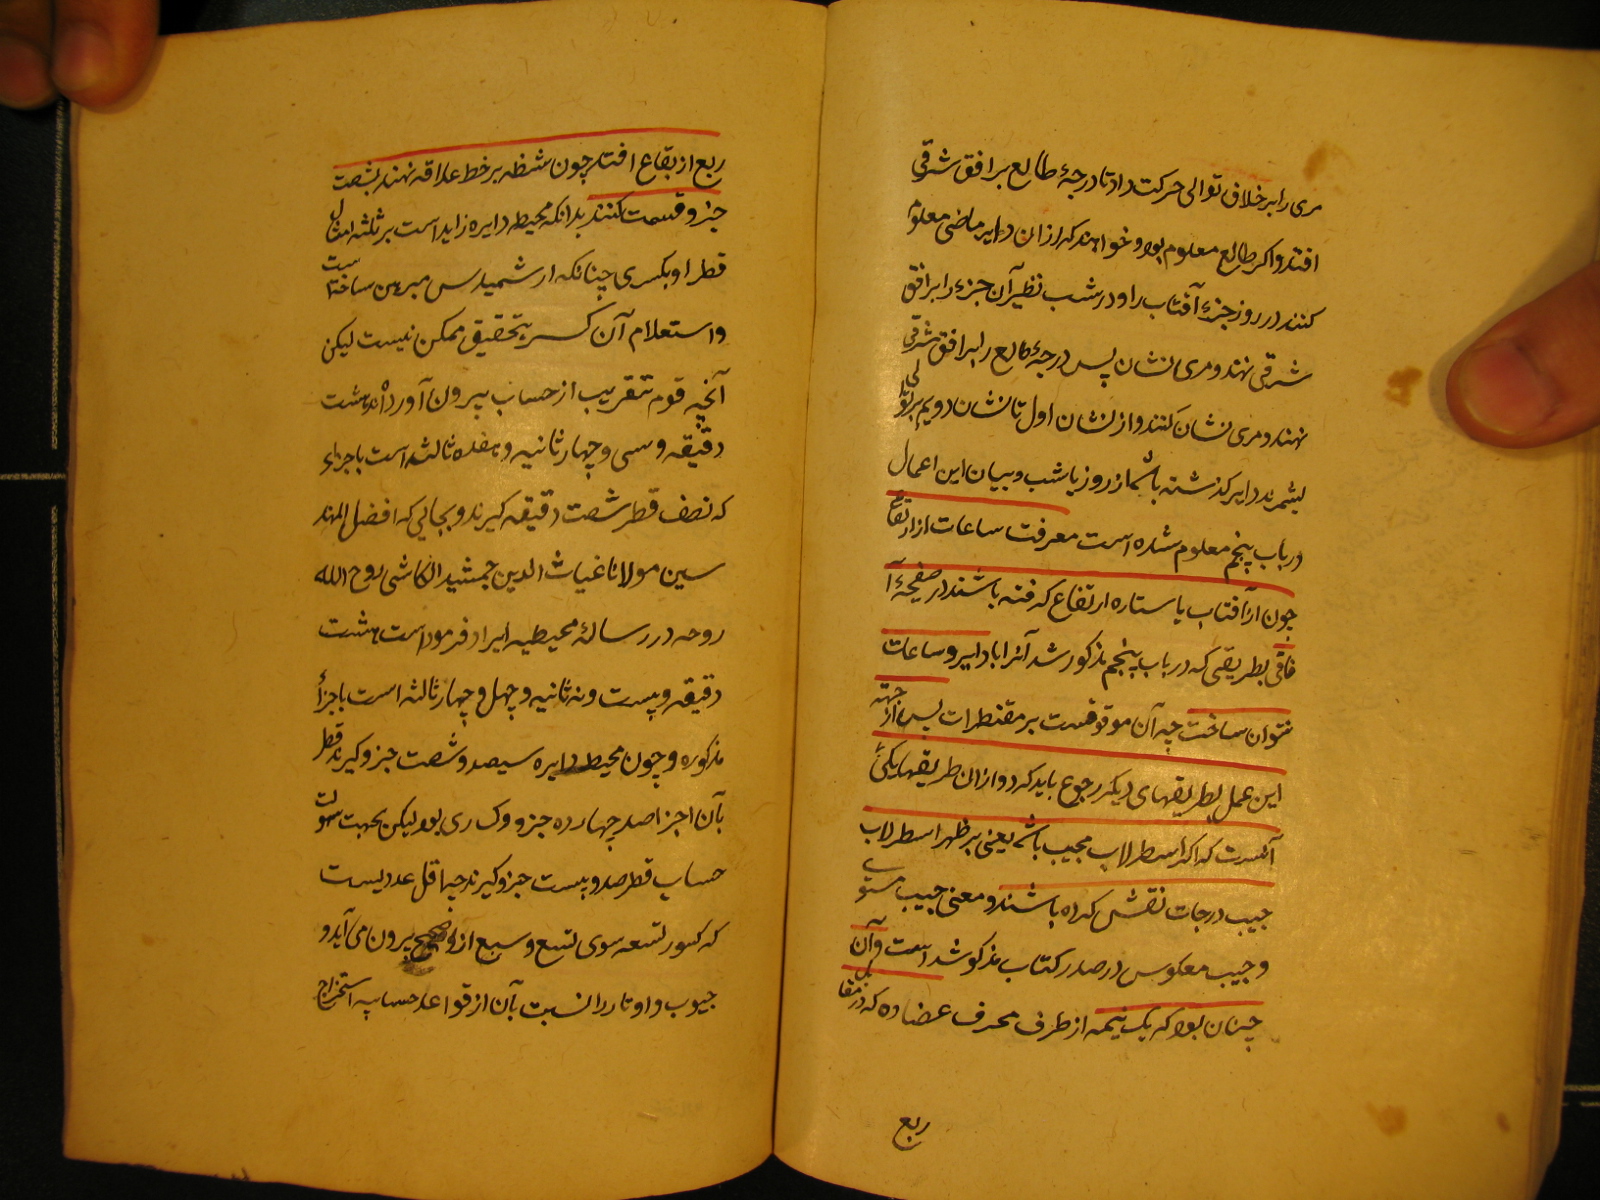 مری را بر خلاف توالی حرکت داد تا درجهٔ طالع بر افق شرقی
افتد و اکر طالع معلوم بود و خواهند که ازان دایر ماضی معلوم
کنند در روز جزء آفتاب را و در شب نظیر آن جزء را بر افق
شرقی نهند و مری نشان پس درجهٔ طالع را بر افق شرقی
نهند و مری نشان کنند و از نشان اول تا نشان دویم بر توالی
بشمرند دایر کذشته باشد از روز یا شب و بیان این اعمال
در باب پنجم معلوم شده است معرفت ساعات از ارتفاع
چون از آفتاب یا ستاره ارتفاع کرفته باشند در صفیحهٔ آ
فاقی بطریقی که در باب پنجم مذکور شد آنرا با دایر و ساعات
نتوان ساخت چه آن موقوفست بر مقنطرات پس از جهته
این عمل بطریقهای دیکر رجوع باید کرد و ازان طریقها یکیٔ
آنست که اکر اسطرلاب مجیب باشد یعنی بر ظهر اسطرلاب
جیب درجات نقش کرده باشند و معنی جیب مستوی
و جیب معکوس در صدر کتاب مذکور شد است و آن
چنان بود که یک نیمه از طرف محرف عضاده که در مقابل
ربع
ربع از بقاع افتد چون شظیه بر خط علاقه نهند بشصت
جزو قسمت کنند بدانکه محیط دایره زاید است بر ثلثه امثال
قطر او بکسری چنانکه ارشمیدس مبرهن ساخته است
و استعلام آن کسر بتحقیق ممکن نیست لیکن
آنچه قوم بتقریب از حساب بیرون آورده‌اند هشت
دقیقه و سی و چهار ثانیه و هفده ثالثه است باجزاء
که نصف قطر شصت دقیقه کیرند و بجایی که افضل المهند
سین مولانا غیاث الدین جمشید الکاشی روح الله
روحه در رسالهٔ محیطیه ایراد فرموده است هشت
دقیقه و بیست و نه ثانیه و چهل و چهار ثالثه است باجزأ
مذکوره و چون محیط دایره سیصد و شصت جزو کیرند قطر
بآن اجزا صد چهارده جزو و کسری بود لیکن بجهت سهولت
حساب قطر صد و بیست جزو کیرند چه اقل عددیست
که کسور تسعه سوی تسع و سبع از او صحیح بیرون می آید و
جیوب و اوتار را نسبت بآن از قواعد حسابیه استخراج